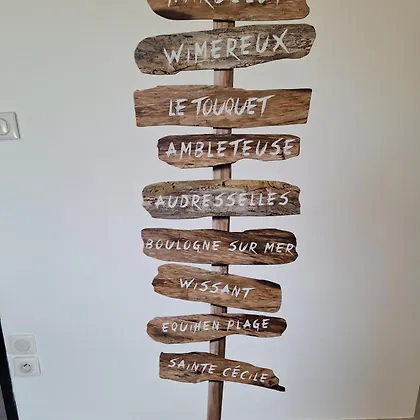 WIMEREUX
LE TOUQUET
AMBLETEUSE
AUDRESSELLES
BOULOGNE SUR MER
WISSANT
EQUIHEN PLAGE
SAINTE CÉCILE